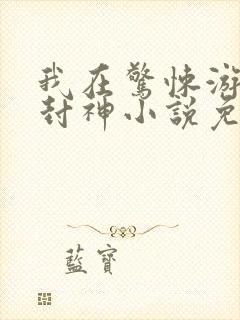 我在驚悚游
封神小說免
藍寶